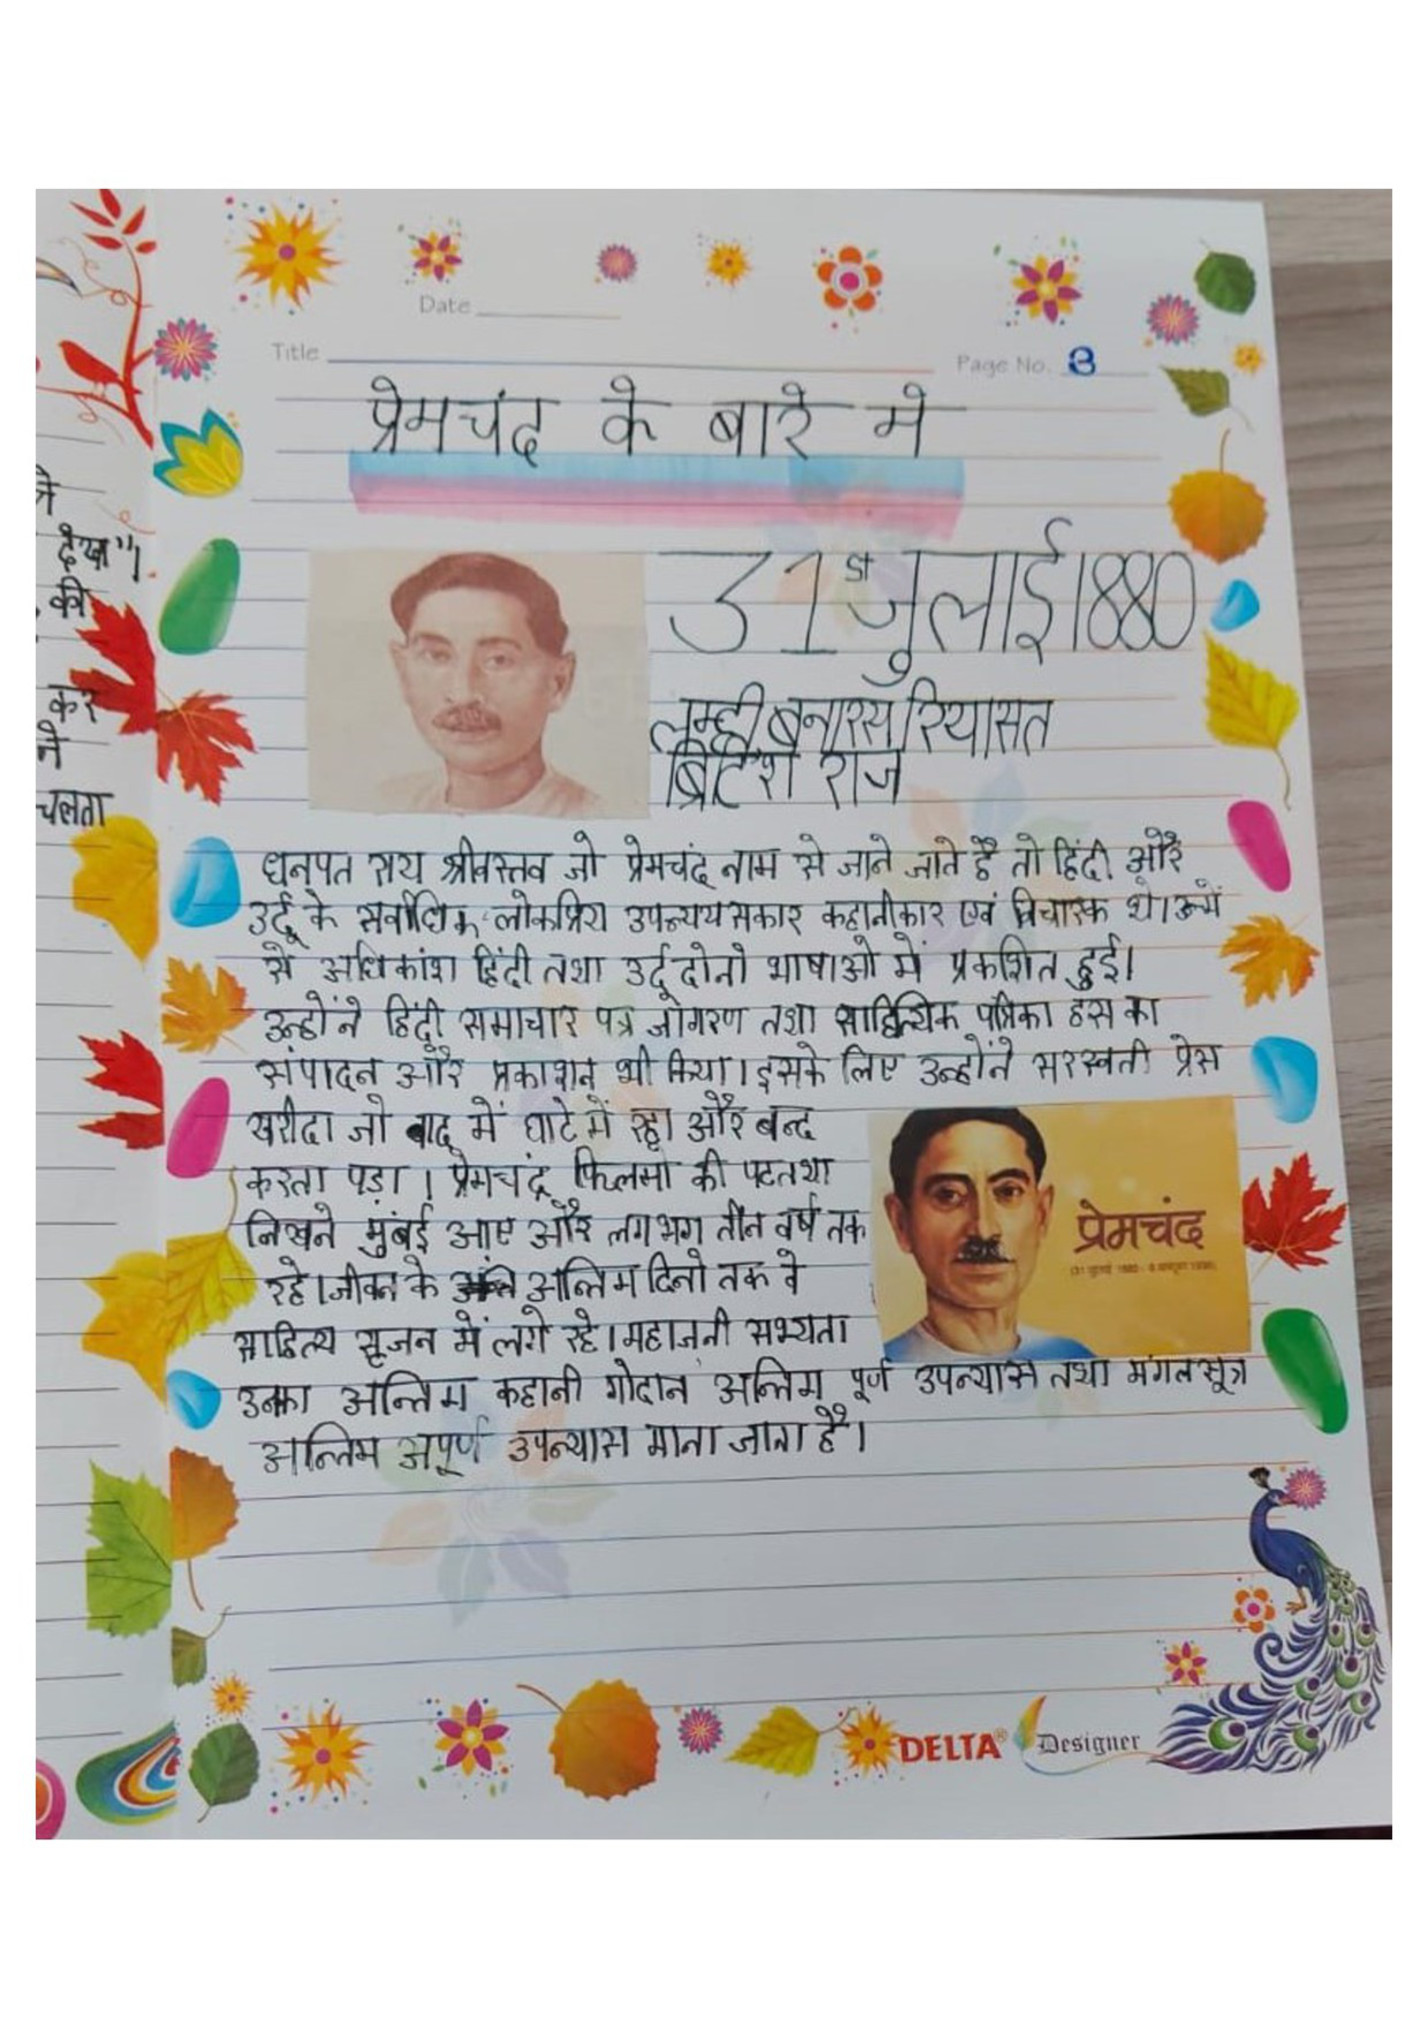 Date
Title
Page No. 3
प्रेमचंद के बारे मे
31st जुलाई 1880
लम्ही बनारस रियासत
ब्रिटिश राज
धनपत राय श्रीवस्तव जो प्रेमचंद नाम से जाने जाते है तो हिंदी और
उर्दू के सर्वाधिक लोकप्रिय उपन्ययसकार कहानीकार एवं विचारक थे। उनमें
से अधिकांश हिंदी तथा उर्दू दोनो भाषाओ में प्रकशित हुई।
उन्होंने हिंदी समाचार पत्र जागरण तथा साहित्यिक पत्रिका हस का
संपादन और प्रकाशन भी किया। इसके लिए उन्होंने सरस्वती प्रेस
खरीदा जो बाद में घाटे में रहा और बन्द
करता पड़ा। प्रेमचंद फिल्मो की पटतथा
लिखने मुंबई आए और लगभग तीन वर्ष तक
रहे। जीवन के अन्तिम दिनो तक वे
साहित्य सृजन में लगे रहे। महाजनी सभ्यता
उनका अन्तिम कहानी गोदान अन्तिम पूर्ण उपन्यास तथा मंगलसूत्र
अन्तिम अपूर्ण उपन्यास माना जाता है।
प्रेमचंद
DELTA® Designer
ने
देखा"।
की
कर
ने
चलता